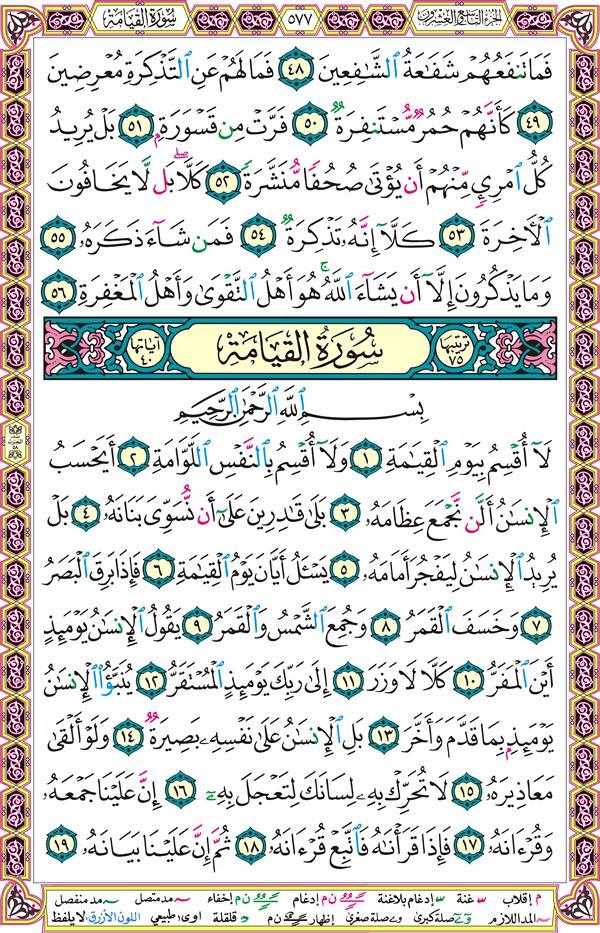 سُورَةُ القِيَامَةِ ٥٧٧ الجُزءُ التَّاسِعُ وَالعِشرُونَ
فَمَا تَنفَعُهُمْ شَفَٰعَةُ ٱلشَّٰفِعِينَ ٤٨ فَمَا لَهُمْ عَنِ ٱلتَّذْكِرَةِ مُعْرِضِينَ
٤٩ كَأَنَّهُمْ حُمُرٌ مُّسْتَنفِرَةٌ ٥٠ فَرَّتْ مِن قَسْوَرَةٍۭ ٥١ بَلْ يُرِيدُ
كُلُّ ٱمْرِئٍ مِّنْهُمْ أَن يُؤْتَىٰ صُحُفًا مُّنَشَّرَةً ٥٢ كَلَّاۖ بَل لَّا يَخَافُونَ
ٱلْءَاخِرَةَ ٥٣ كَلَّآ إِنَّهُۥ تَذْكِرَةٌ ٥٤ فَمَن شَآءَ ذَكَرَهُۥ ٥٥
وَمَا يَذْكُرُونَ إِلَّآ أَن يَشَآءَ ٱللَّهُۚ هُوَ أَهْلُ ٱلتَّقْوَىٰ وَأَهْلُ ٱلْمَغْفِرَةِ ٥٦
تَرتِيبُهَا ٧٥ سُورَةُ القِيَامَةِ آيَاتُهَا ٤٠
بِسْمِ ٱللَّهِ ٱلرَّحْمَٰنِ ٱلرَّحِيمِ
لَآ أُقْسِمُ بِيَوْمِ ٱلْقِيَٰمَةِ ١ وَلَآ أُقْسِمُ بِٱلنَّفْسِ ٱللَّوَّامَةِ ٢ أَيَحْسَبُ
ٱلْإِنسَٰنُ أَلَّن نَّجْمَعَ عِظَامَهُۥ ٣ بَلَىٰ قَٰدِرِينَ عَلَىٰٓ أَن نُّسَوِّىَ بَنَانَهُۥ ٤ بَلْ
يُرِيدُ ٱلْإِنسَٰنُ لِيَفْجُرَ أَمَامَهُۥ ٥ يَسْـَٔلُ أَيَّانَ يَوْمُ ٱلْقِيَٰمَةِ ٦ فَإِذَا بَرِقَ ٱلْبَصَرُ
٧ وَخَسَفَ ٱلْقَمَرُ ٨ وَجُمِعَ ٱلشَّمْسُ وَٱلْقَمَرُ ٩ يَقُولُ ٱلْإِنسَٰنُ يَوْمَئِذٍ
أَيْنَ ٱلْمَفَرُّ ١٠ كَلَّا لَا وَزَرَ ١١ إِلَىٰ رَبِّكَ يَوْمَئِذٍ ٱلْمُسْتَقَرُّ ١٢ يُنَبَّؤُا۟ ٱلْإِنسَٰنُ
يَوْمَئِذٍۭ بِمَا قَدَّمَ وَأَخَّرَ ١٣ بَلِ ٱلْإِنسَٰنُ عَلَىٰ نَفْسِهِۦ بَصِيرَةٌ ١٤ وَلَوْ أَلْقَىٰ
مَعَاذِيرَهُۥ ١٥ لَا تُحَرِّكْ بِهِۦ لِسَانَكَ لِتَعْجَلَ بِهِۦٓ ١٦ إِنَّ عَلَيْنَا جَمْعَهُۥ
وَقُرْءَانَهُۥ ١٧ فَإِذَا قَرَأْنَٰهُ فَٱتَّبِعْ قُرْءَانَهُۥ ١٨ ثُمَّ إِنَّ عَلَيْنَا بَيَانَهُۥ ١٩
م إقلاب غنة إدغام بلاغنة ن م إدغام ن م إخفاء مد متصل مد منفصل
المد اللازم صلة كبرى صلة صغرى إظهار ن م قلقلة اوى طبيعي اللون الأزرق: لا يلفظ